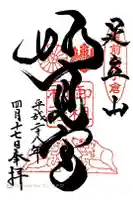 足立山
妙見宮
平成二十八年
四月十七日奉拝